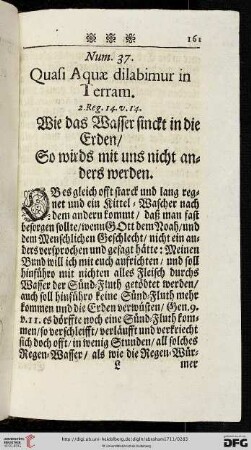 161
Num. 37.
Quasi Aquæ dilabimur in
Terram.
2. Reg. 14. v. 14.
Wie das Wasser sinckt in die
Erden/
So wirds mit uns nicht an-
ders werden.
OBes gleich offt starck und lang reg-
net und ein Kittel-Wascher nach
dem andern kommt/ daß man fast
besorgen sollte/ wenn Gott dem Noah/ und
dem Menschlichen Geschlecht/ nicht ein an-
ders versprochen und gesagt hätte: Meinen
Bund will ich mit euch auffrichten/ und soll
hinführo mit nichten alles Fleisch durchs
Wasser der Sünd-Fluth getödtet werden/
auch soll hinführo keine Sünd-Fluth mehr
kommen und die Erden verwüsten/ Gen. 9.
v. 11. es dörffte noch eine Sünd-Fluth kom-
men/ so verschleifft/ verläufft und verkriecht
sich doch offt/ in wenig Stunden/ all solches
Regen-Wasser/ als wie die Regen-Wür-
L
mer
http://digi.ub.uni-heidelberg.de/diglit/abraham1711/0203
© Universitätsbibliothek Heidelberg